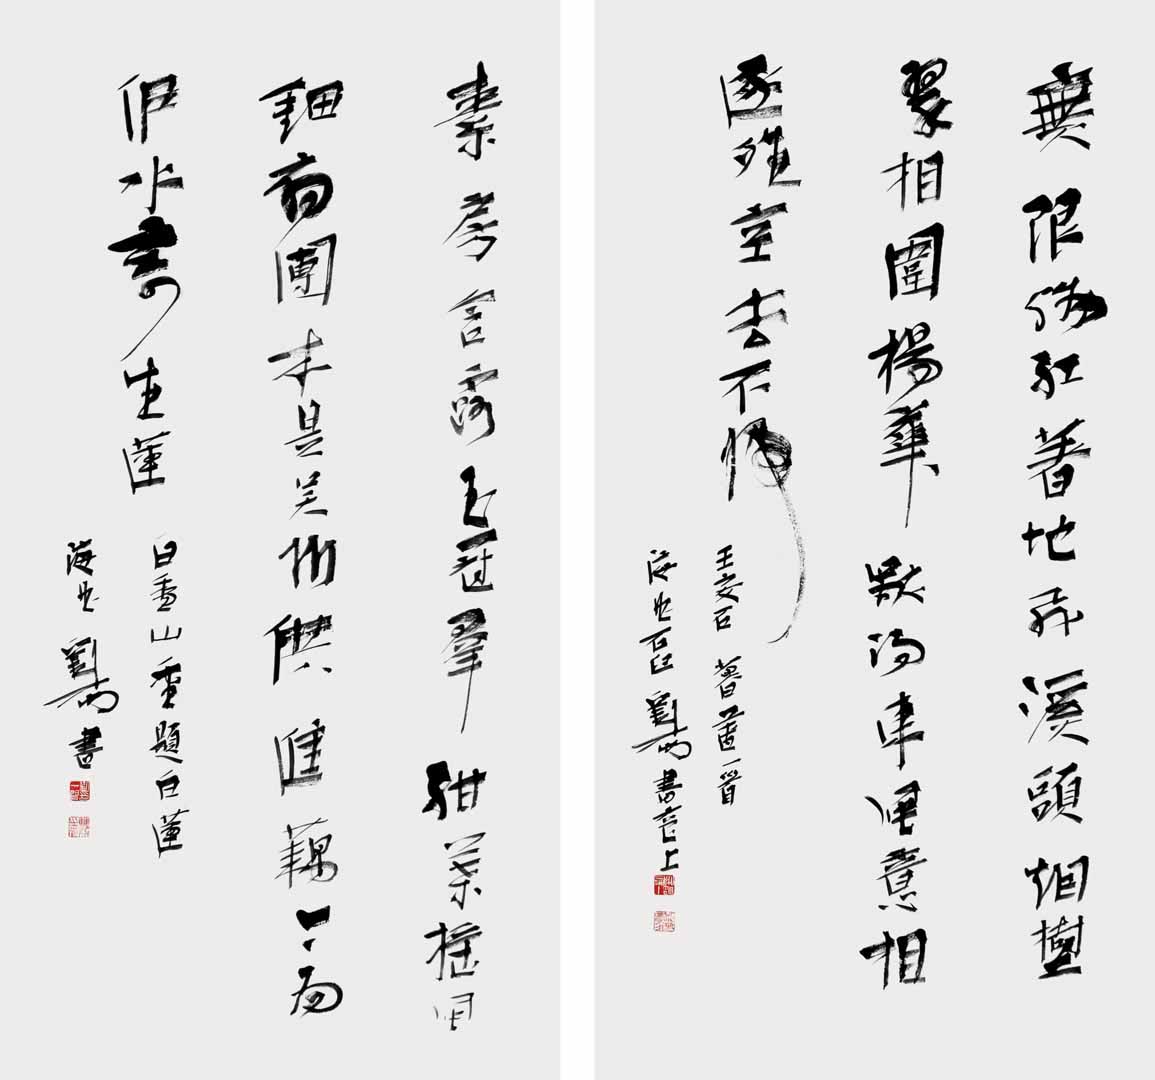 無限殘紅著地飛溪頭烟樹
翠相圍楊華獨得東風意相
逐晴空去不歸
王安石暮春一首
海曲劉一聞書
素房含露玉冠鮮紺葉搖風
鈿扇團本是吳州供進藕今為
伊水寄生蓮
白香山重題白蓮
海曲劉一聞書